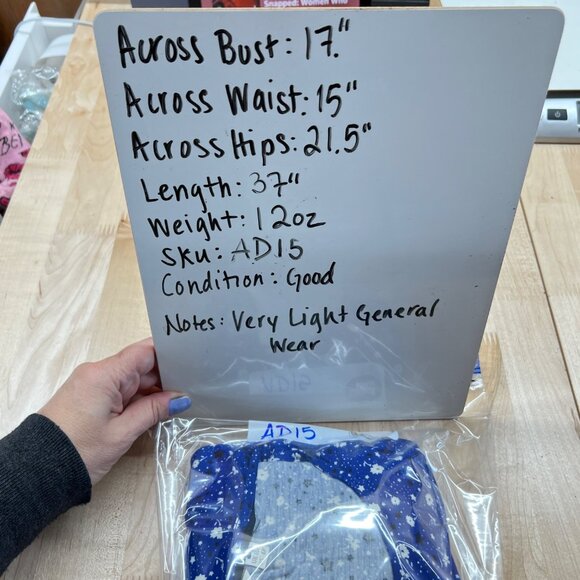 Snapped: Women Who
Across Bust: 17"
Across Waist: 15"
Across Hips: 21.5"
Length: 37"
Weight: 12oz
Sku: AD15
Condition: Good
Notes: Very Light General
Wear
AD15